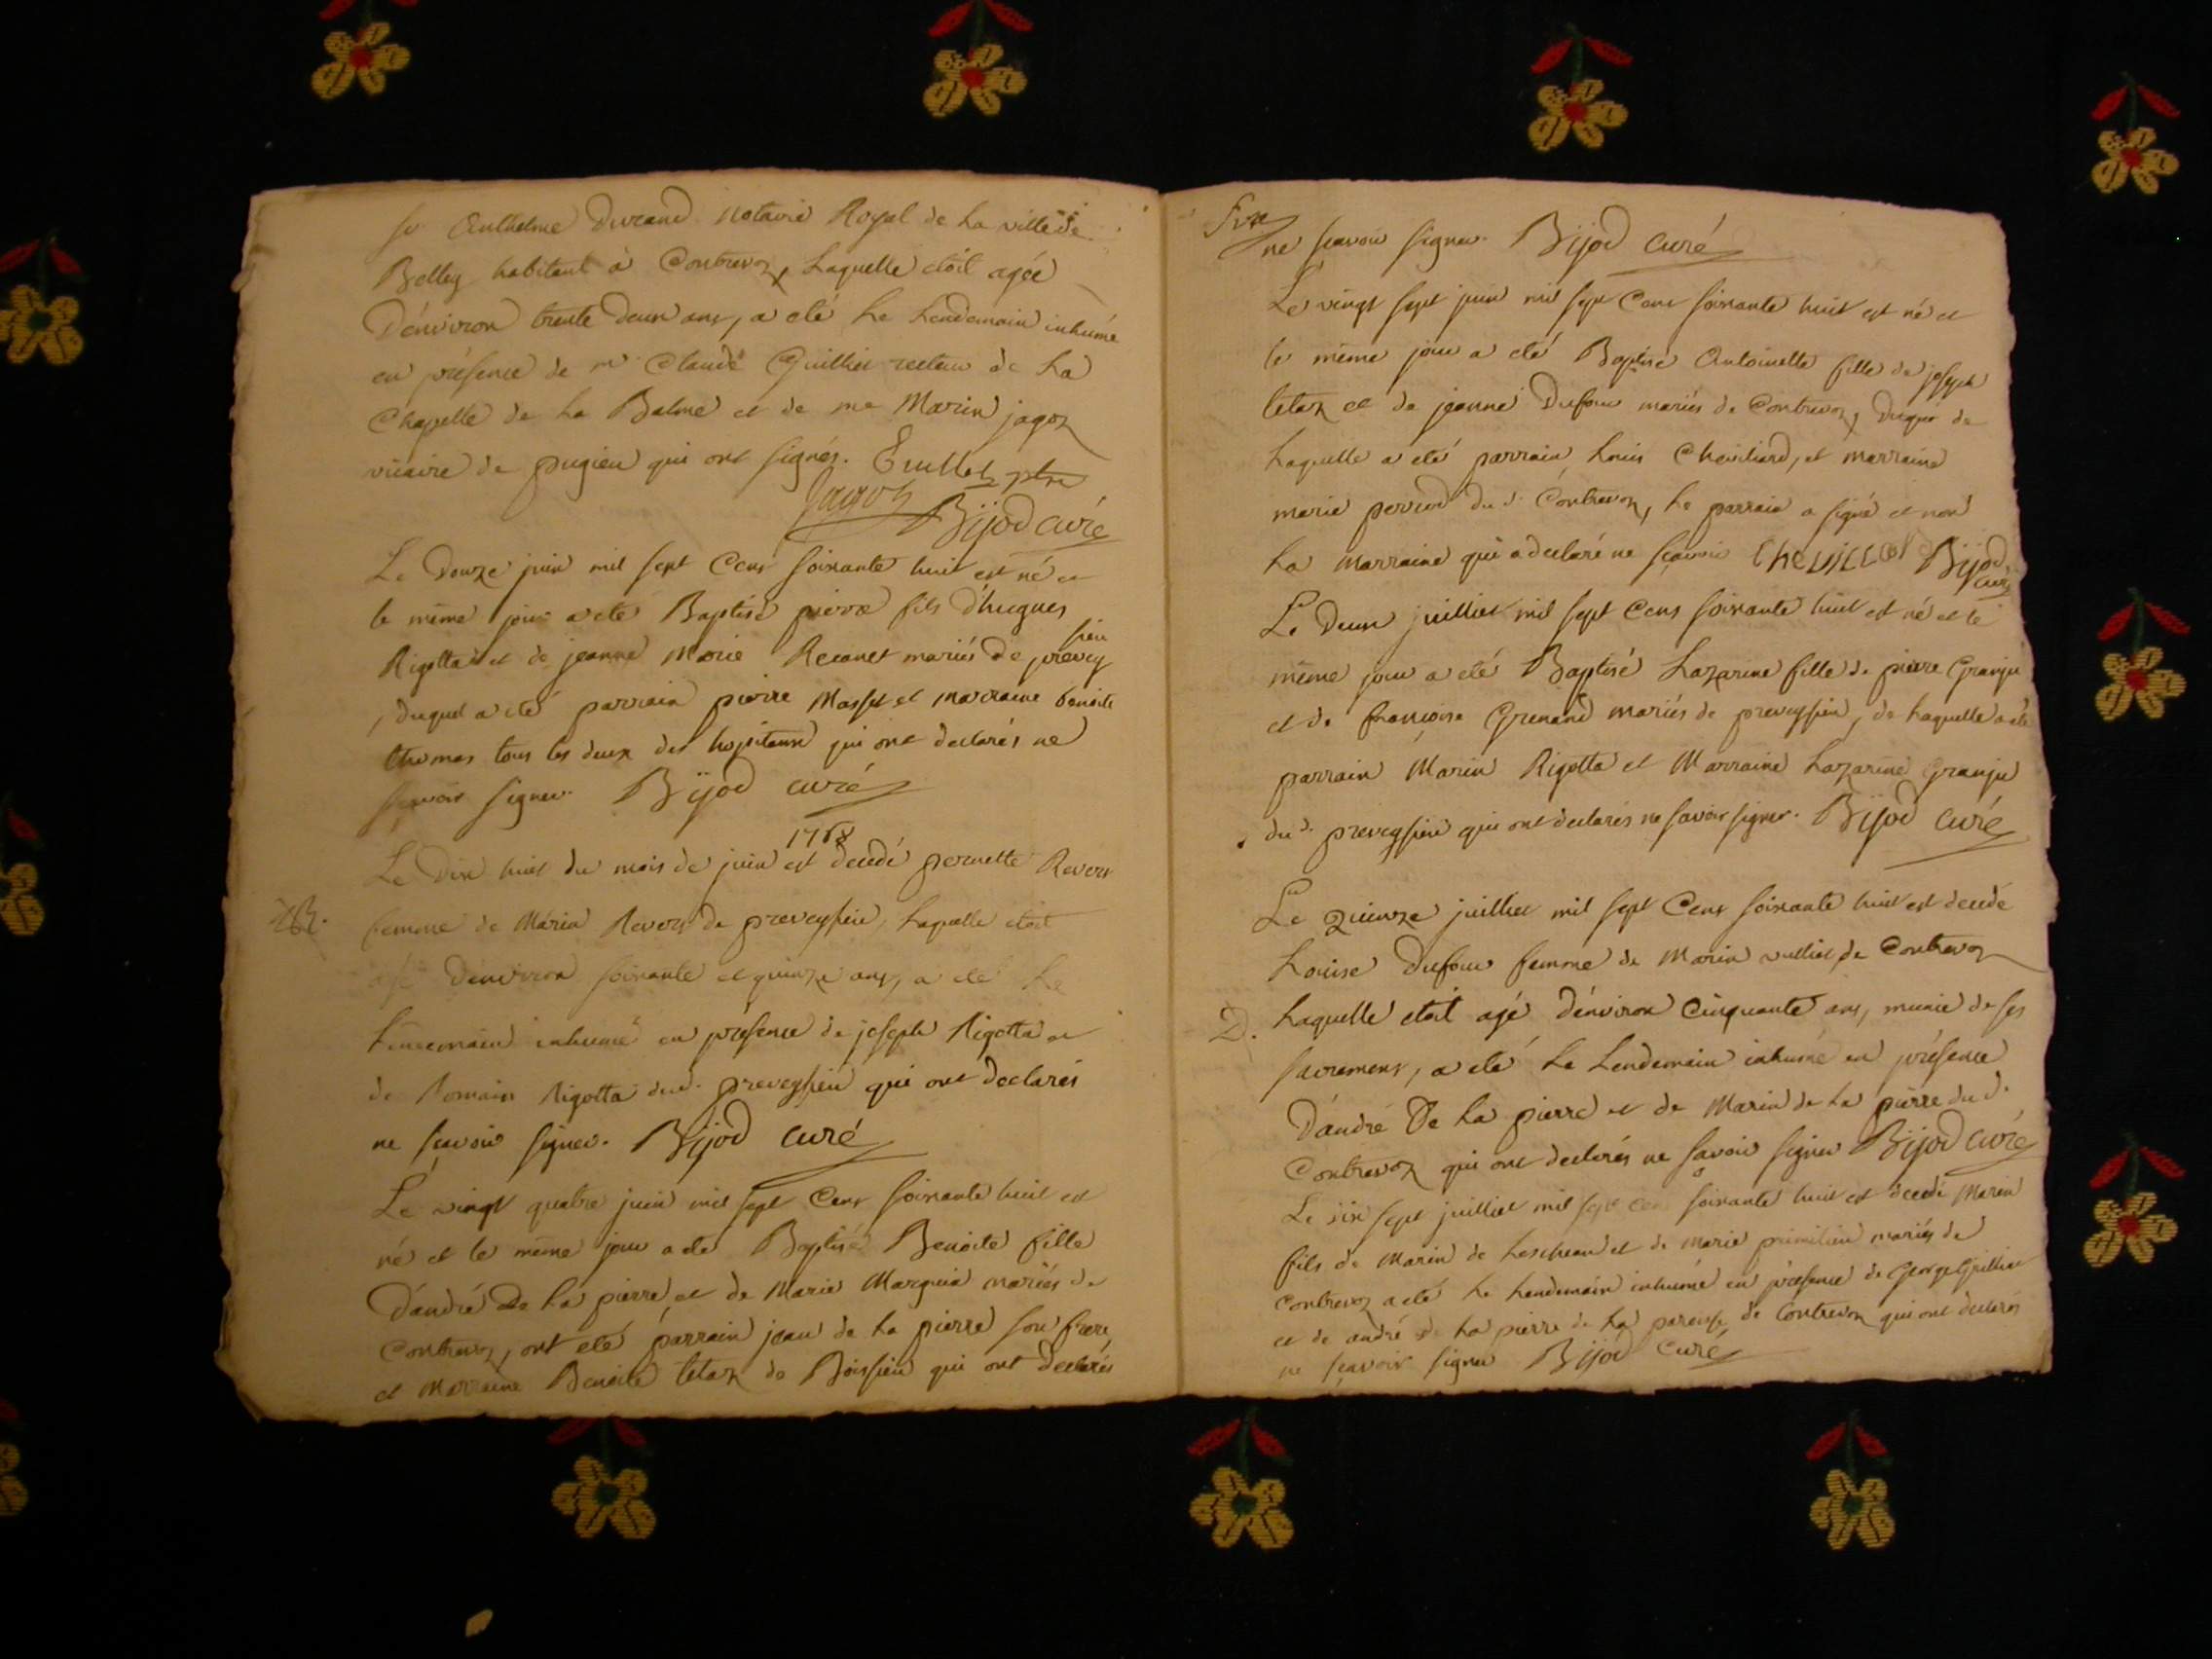 sr Anthelme Durand notaire Royal de la ville de
Belley habitant à Contrevoz, laquelle etoit agée
D'environ trente deux ans, a eté le lendemain inhumé
en présence de mr Claude Guillet recteur de la
Chapelle de la Balme et de me Marin jagoz
vicaire de pugieu qui ont signés. Guillet ptre
Jagoz Bijod curé
Le Douze juin mil sept Cens soixante huit est né et
le même jour a eté Baptisé pierre fils d'hugues
Rigotta et de jeanne Marie mariés de prevey
sieu
, duquel a eté parrain pierre Masset et Marraine benoite
thomas tous les deux des hopitaux qui ont declarés ne
sçavoir signer. Bijod curé
1768
Le Dix huit du mois de juin est decedé pernette Revers
femme de Marin Revers de preveysieu, laquelle etoit
agé d'environ soixante et quinze ans, a eté le
lendemain inhumé en présence de joseph Rigotta et
de Romain Rigotta dud. preveysieu qui ont declarés
ne sçavoir signer. Bijod curé
Le vingt quatre juin mil sept Cens soixante huit est
né et le même jour a eté Baptisé Benoite fille
D'andré De la pierre et de Marie Marguin mariés de
Contrevoz, ont eté parrain jean de la pierre son frere,
et Marraine Benoite tetaz de Boissieu qui ont declarés
ne sçavoir signer. Bijod curé
Le vingt sept juin mil sept Cens soixante huit est né et
le même jour a eté Baptisé Antoinette fille de joseph
tetaz et de jeanne Dufour mariés de Contrevoz, de
laquelle a eté parrain Louis Cheviliard, et marraine
marie du d. Contrevoz, le parrain a signé et non
la marraine qui a declaré ne sçavoir Bijod
curé
Le Deux juillet mil sept Cens soixante huit est né et le
même jour a eté Baptisé Lazarine fille de pierre Granju
et de françoise Grenand mariés de preveysieu, de laquelle a eté
parrain Marin Rigotta et Marraine Lazarine Granju
dud. preveysieu qui ont declarés ne savoir signer. Bijod curé
Le Quinze juillet mil sept Cens soixante huit est decedé
Louise Dufour femme de Marin vulliet, de Contrevoz
D. laquelle etoit agé d'environ Cinquante ans, munie de ses
sacremens, a eté le Lendemain inhumé en présence
D'andré De la pierre et de Marin de la pierre du d.
Contrevoz qui ont declarés ne savoir signer Bijod curé
Le dix sept juillet mil sept cens soixante huit est decedé Marin
fils de Marin de Lescheau et de marie primilieu mariés de
Contrevoz a eté le lendemain inhumé en présence de George Guilliet
et de andré de la pierre de la paroisse de Contrevoz qui ont declarés
ne sçavoir signer Bijod Curé